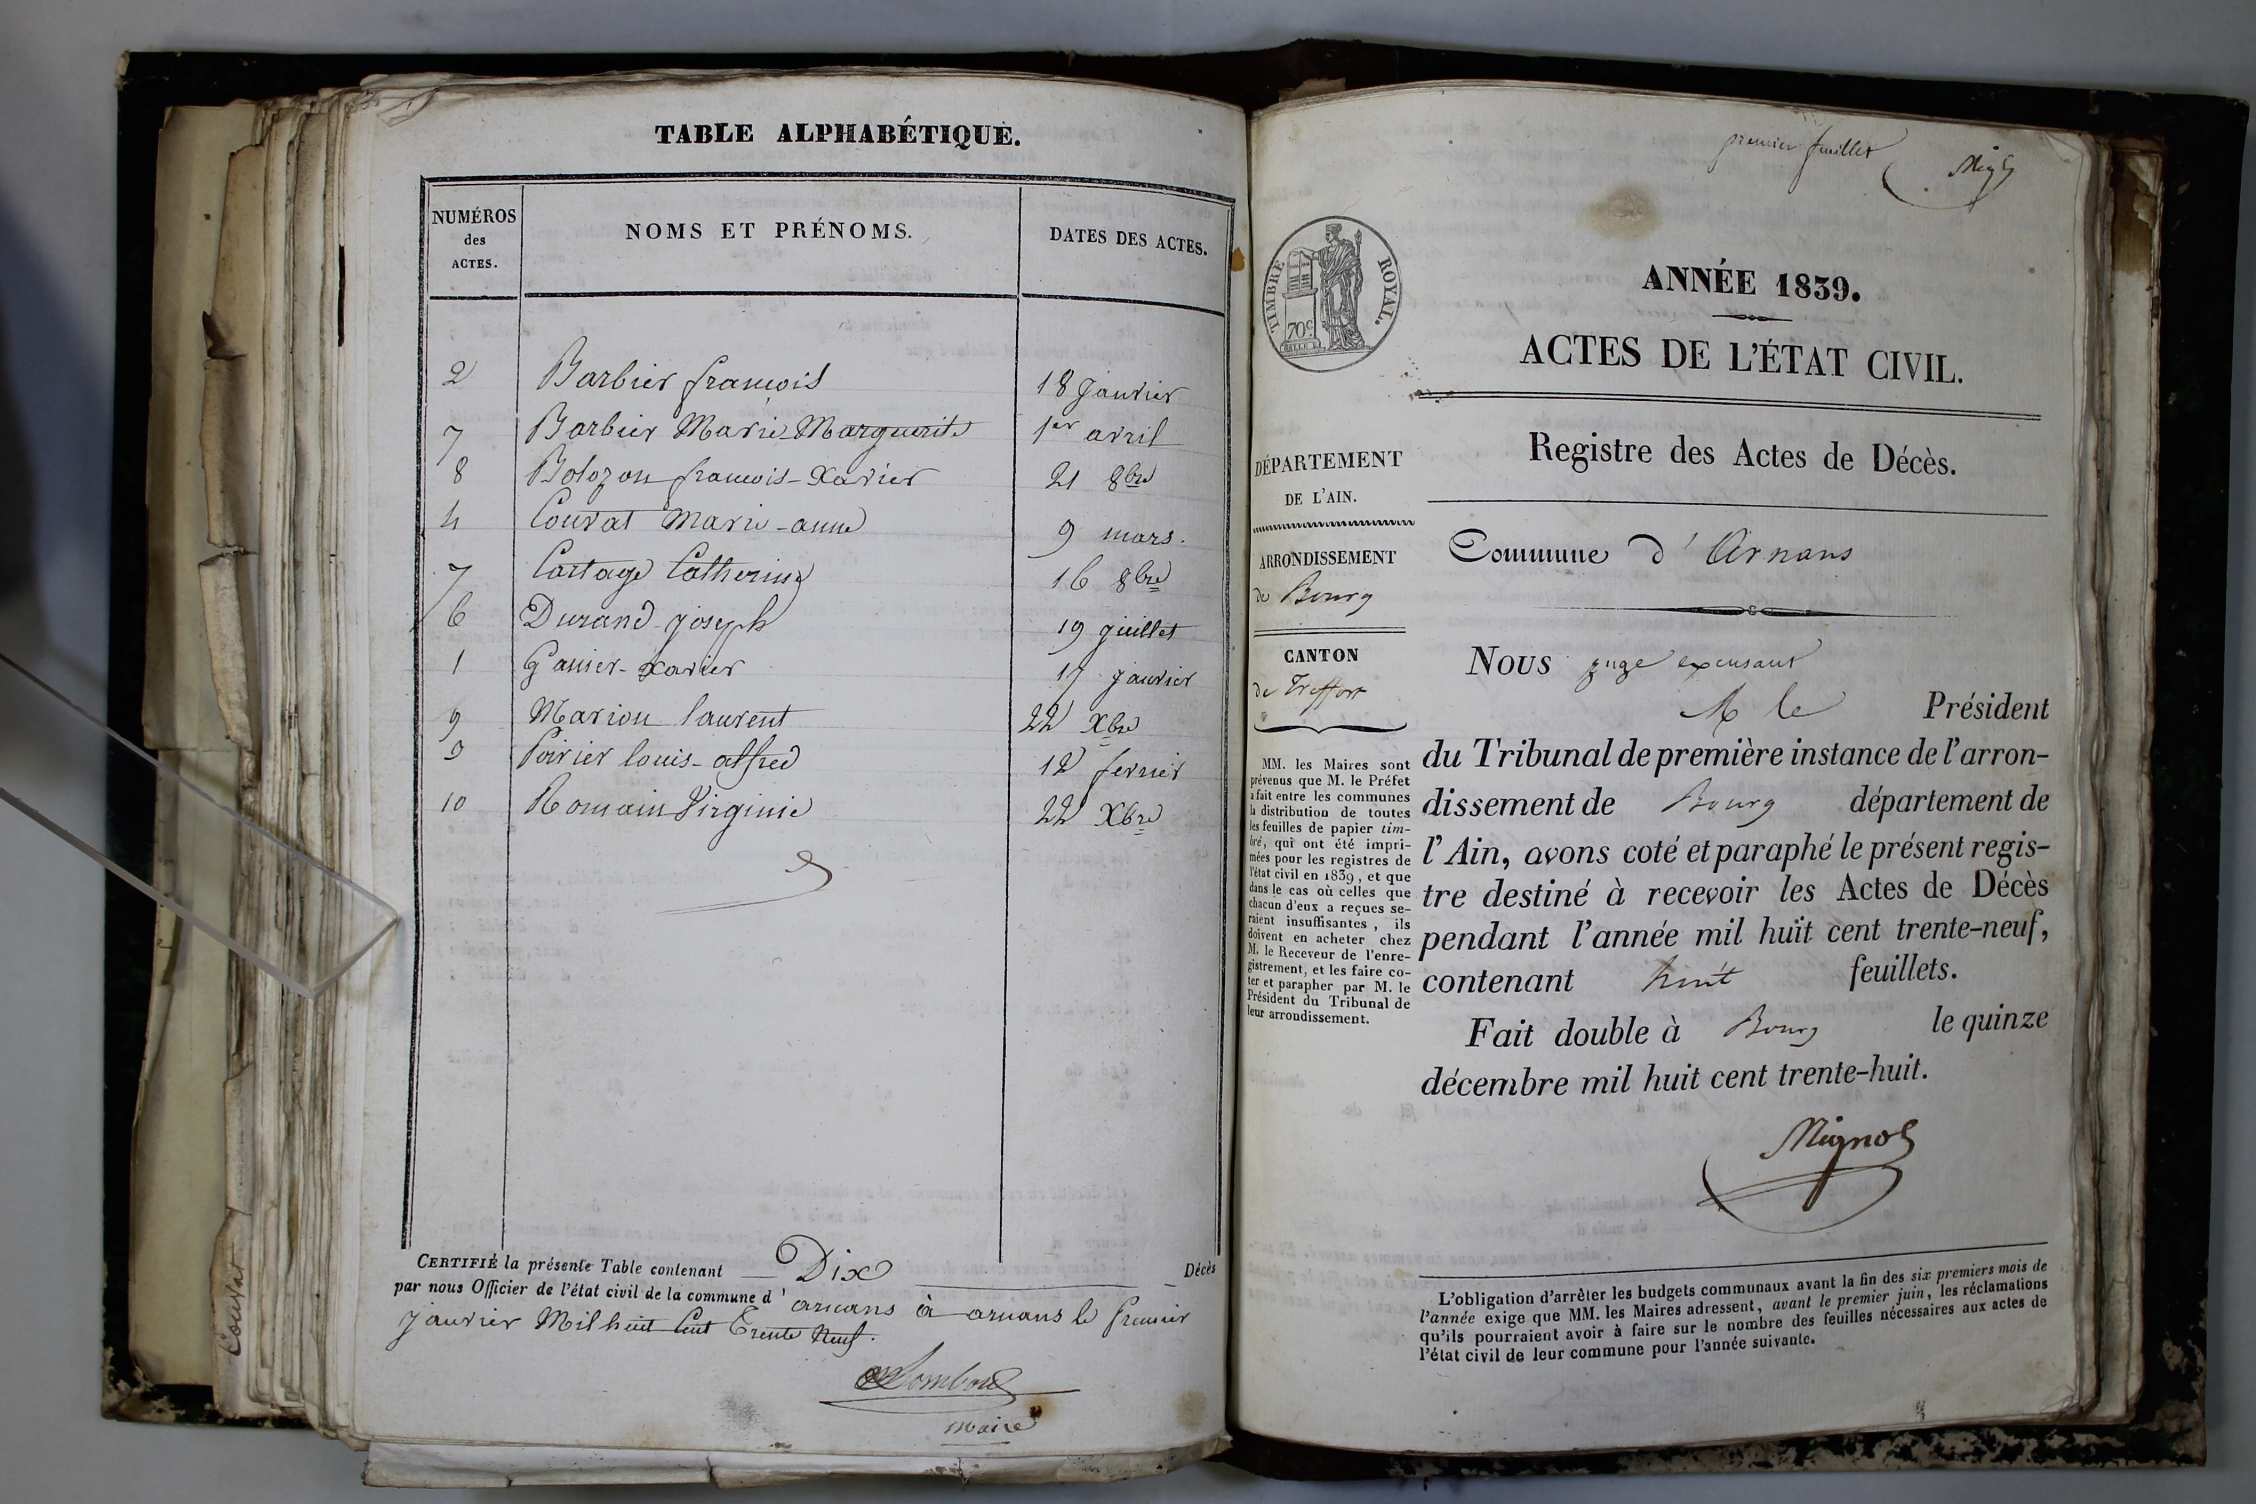 TABLE ALPHABÉTIQUE.
NUMÉROS des ACTES.
NOMS ET PRÉNOMS.
DATES DES ACTES.
2 Barbier françois 18 Janvier
7 Barbier Marie-Marguerite 1er avril
8 Bolozon francois-Xavier 21 8bre
4 Couvat Marie-anne 9 mars.
7 Cartage Catherine 16 8bre
6 Durand joseph 19 juillet
1 Ganier-Xavier 17 janvier
9 Marion laurent 22 Xbre
3 Poirier louis-alfred 12 fevrier
10 Romain Virginie 22 Xbre
CERTIFIÉ la présente Table contenant Dix Décès
par nous Officier de l'état civil de la commune d'arnans à arnans le premier
janvier Mil huit Cent Trente Neuf.
maire
Couvat
premier feuillet
TIMBRE ROYAL.
70c
ANNÉE 1839.
ACTES DE L'ÉTAT CIVIL.
DÉPARTEMENT
DE L'AIN.
ARRONDISSEMENT
de Bourg
CANTON
de Treffort
MM. les Maires sont
prévenus que M. le Préfet
a fait entre les communes
la distribution de toutes
les feuilles de papier tim-
bré, qui ont été impri-
mées pour les registres de
l'état civil en 1839, et que
dans le cas où celles que
chacun d'eux a reçues se-
raient insuffisantes, ils
doivent en acheter chez
M. le Receveur de l'enre-
gistrement, et les faire co-
ter et parapher par M. le
Président du Tribunal de
leur arrondissement.
Registre des Actes de Décès.
Commune d'Arnans
Nous juge expensant
M le Président
du Tribunal de première instance de l'arron-
dissement de Bourg département de
l'Ain, avons coté et paraphé le présent regis-
tre destiné à recevoir les Actes de Décès
pendant l'année mil huit cent trente-neuf,
contenant huit feuillets.
Fait double à Bourg le quinze
décembre mil huit cent trente-huit.
Mignot
L'obligation d'arrêter les budgets communaux avant la fin des six premiers mois de
l'année exige que MM. les Maires adressent, avant le premier juin, les réclamations
qu'ils pourraient avoir à faire sur le nombre des feuilles nécessaires aux actes de
l'état civil de leur commune pour l'année suivante.